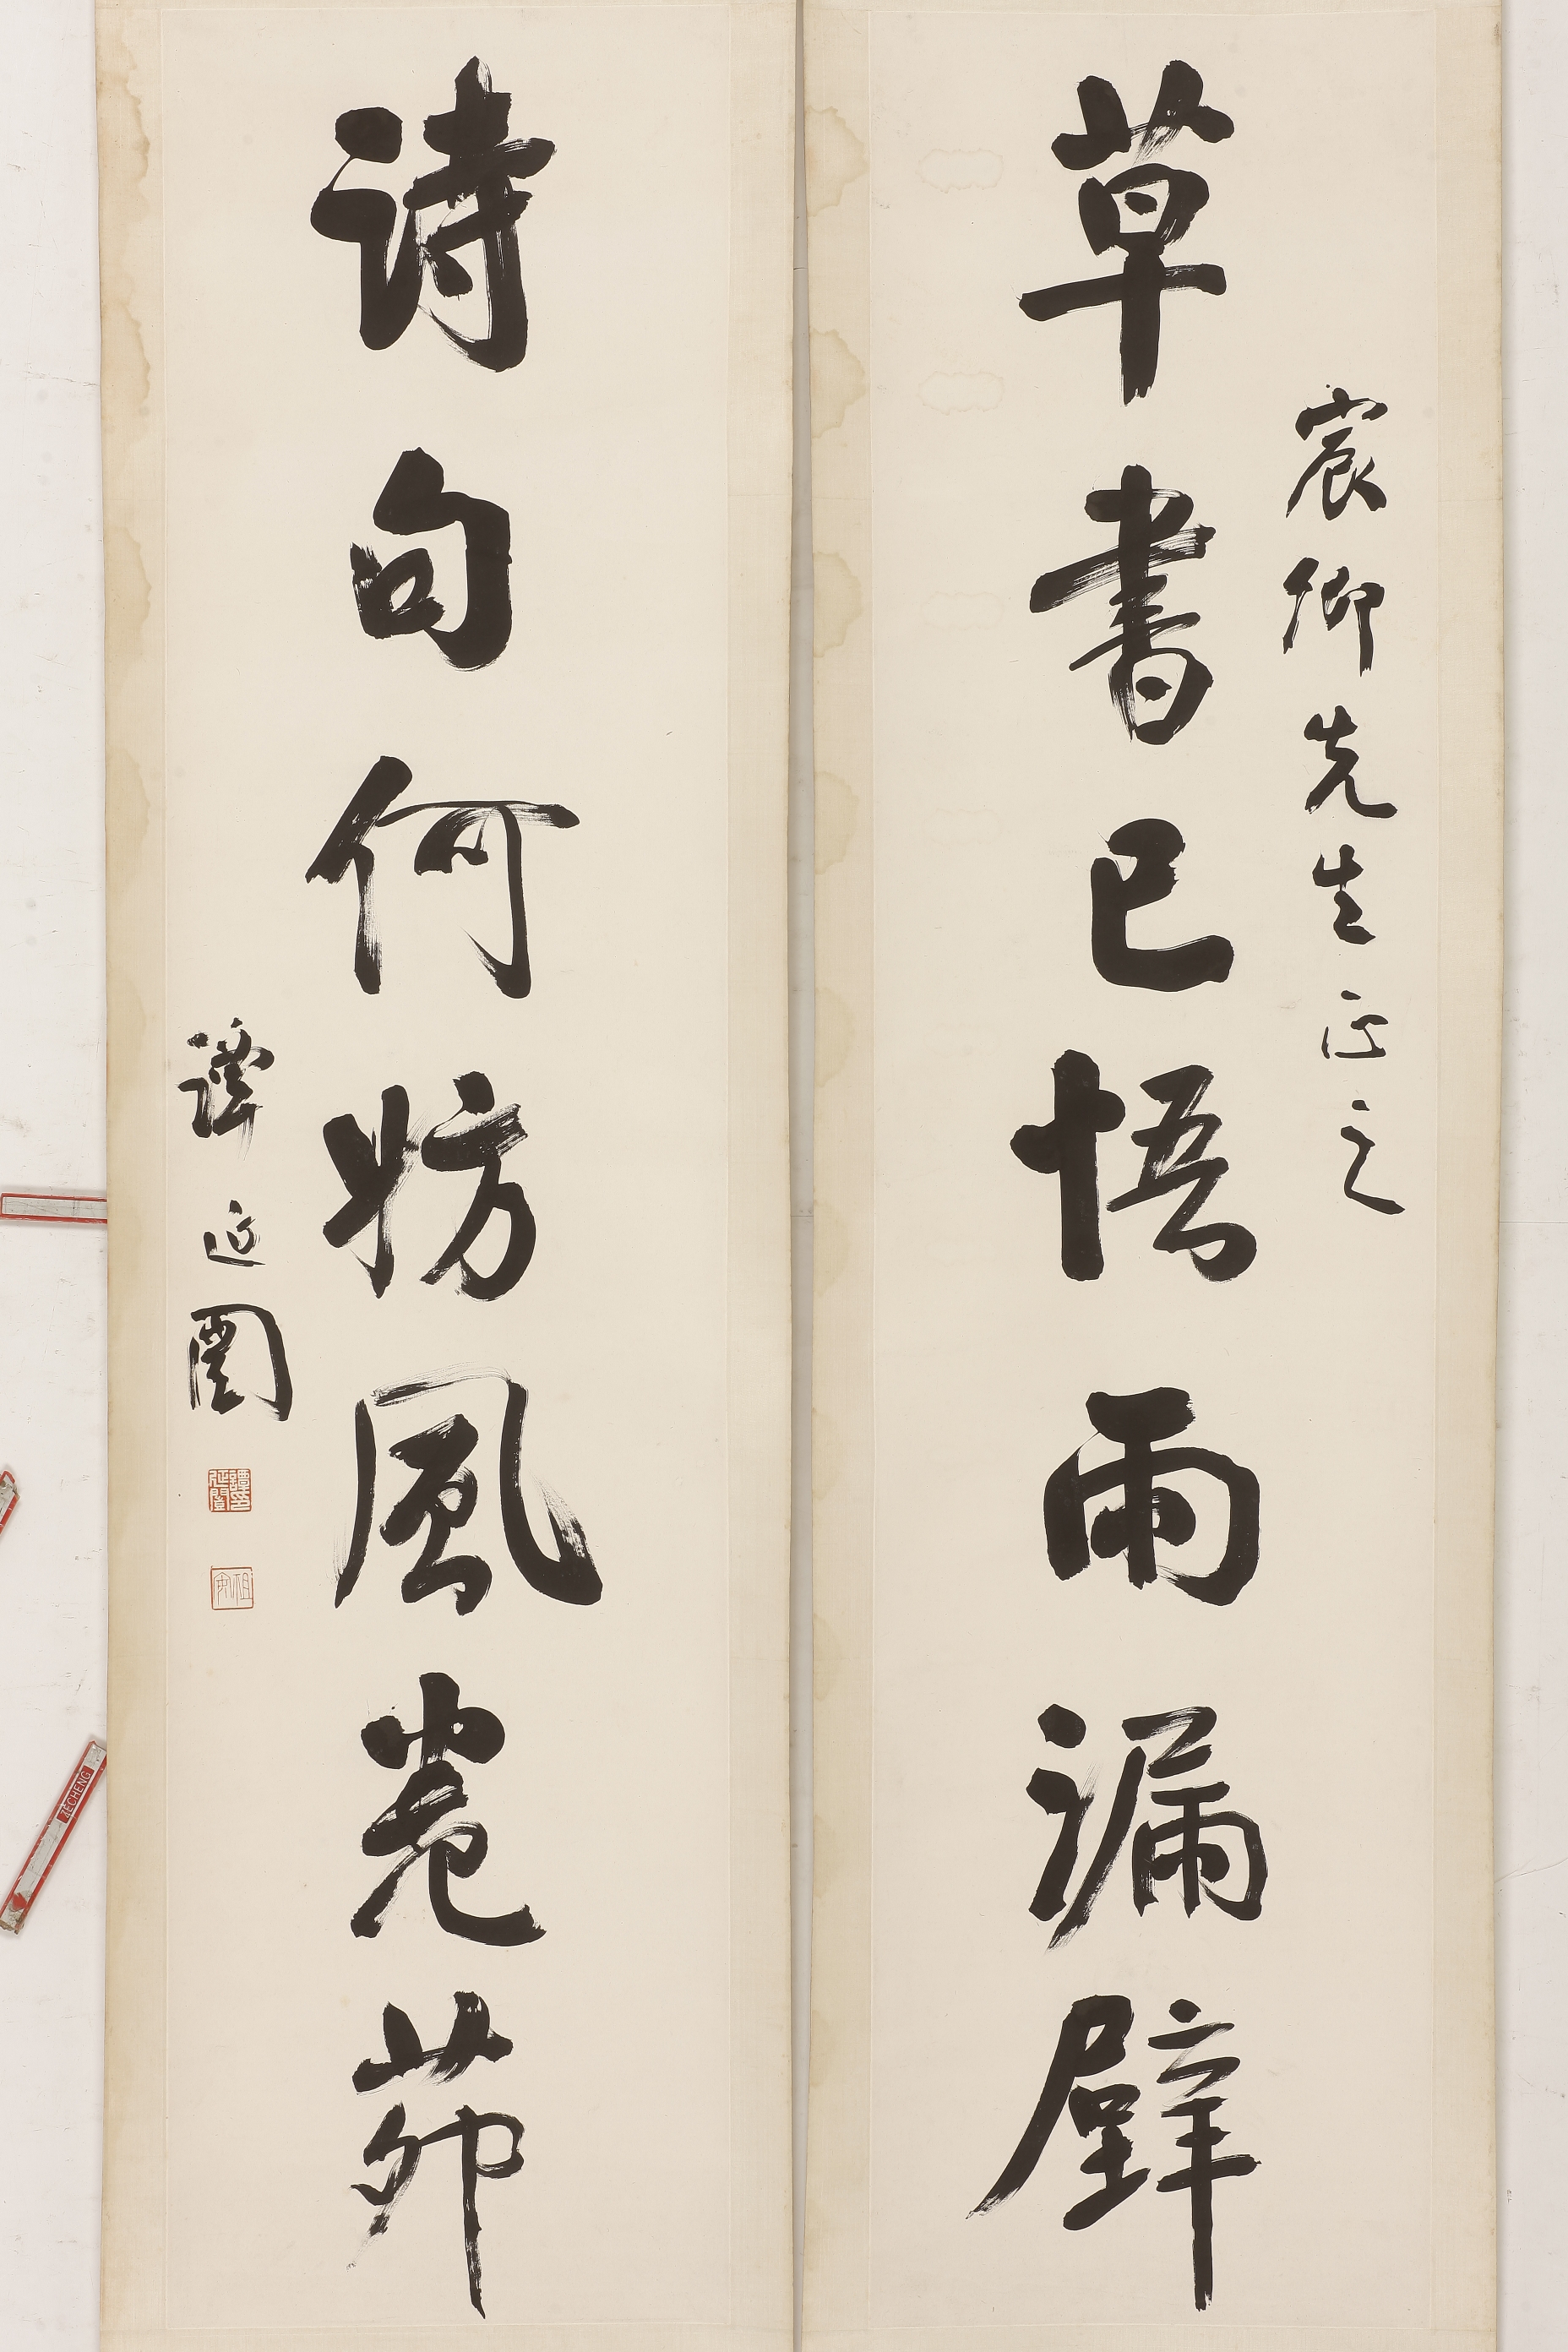 宸卿先生正之
草書已悟雨漏壁
詩句何妨風卷茆
譚延闓
譚印延闓
祖安